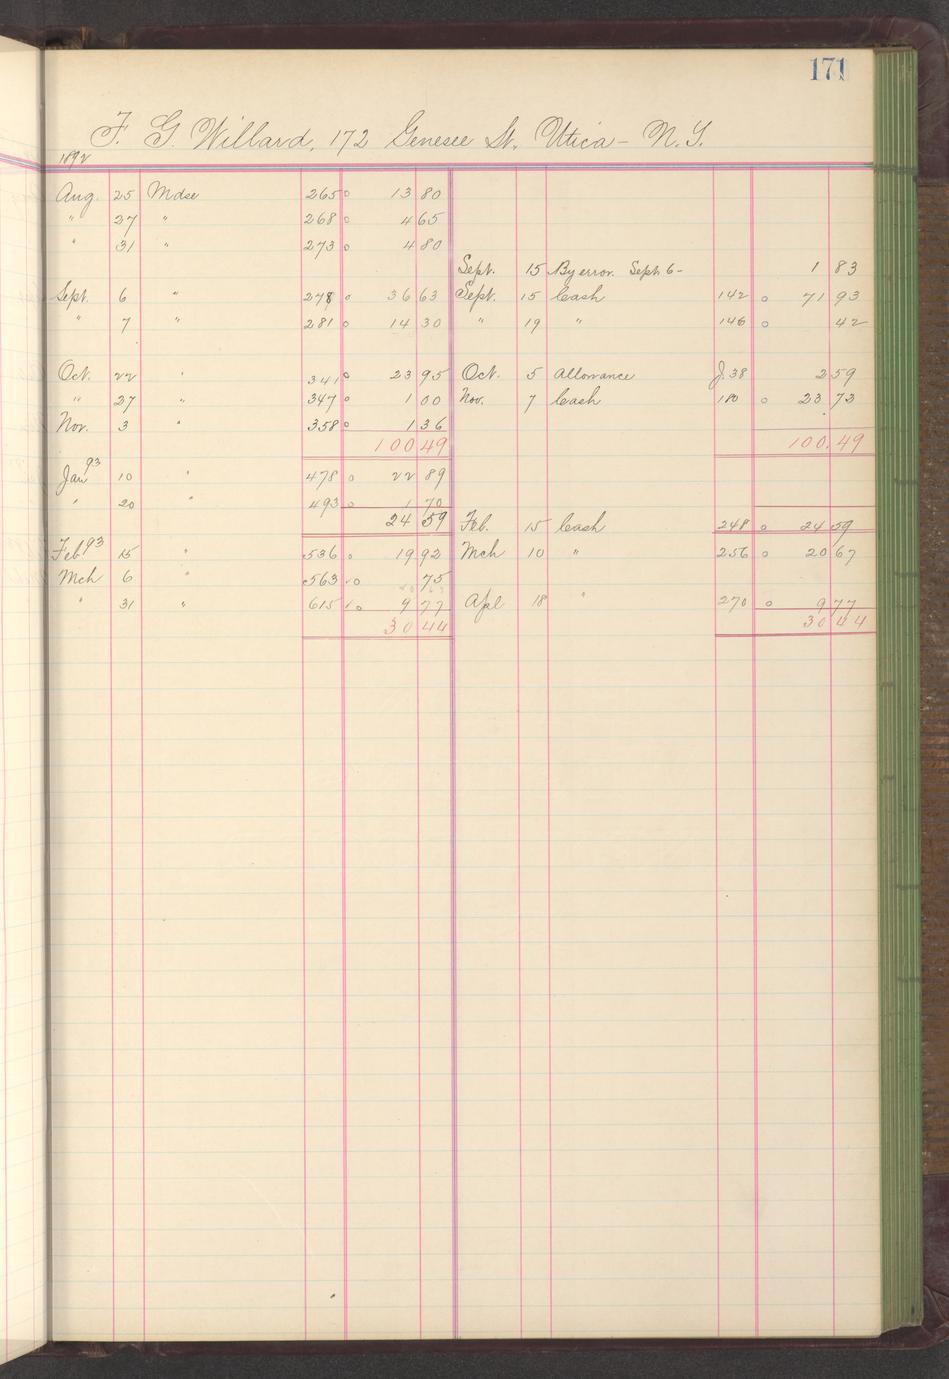 171
F. G. Willard, 172 Genesee St. Utica - N.Y.
1892
Aug. 25 Mdse 265 o 13 80
" 27 " 268 o 4 65
" 31 " 273 o 4 80
Sept. 15 By error. Sept 6- 1 83
Sept. 6 " 278 o 36 63 Sept. 15 Cash 142 o 71 93
" 7 " 281 o 14 30 " 19 " 146 o 42
Oct. 22 " 341 o 23 95 Oct. 5 Allowance J. 38 2 59
" 27 " 347 o 1 00 Nov. 7 Cash 180 o 23 73
Nov. 3 " 358 o 1 36
100 49 100.49
Jan 93 10 " 478 o 22 89
" 20 " 493 o 1 70
24 59 Feb. 15 Cash 248 o 24 59
Feb 93 15 " 536 o 19 92 Mch 10 " 256 o 20 67
Mch 6 " 563 o 75
" 31 " 615 o 9 77 Apl 18 " 270 o 9 77
30 44 30 44